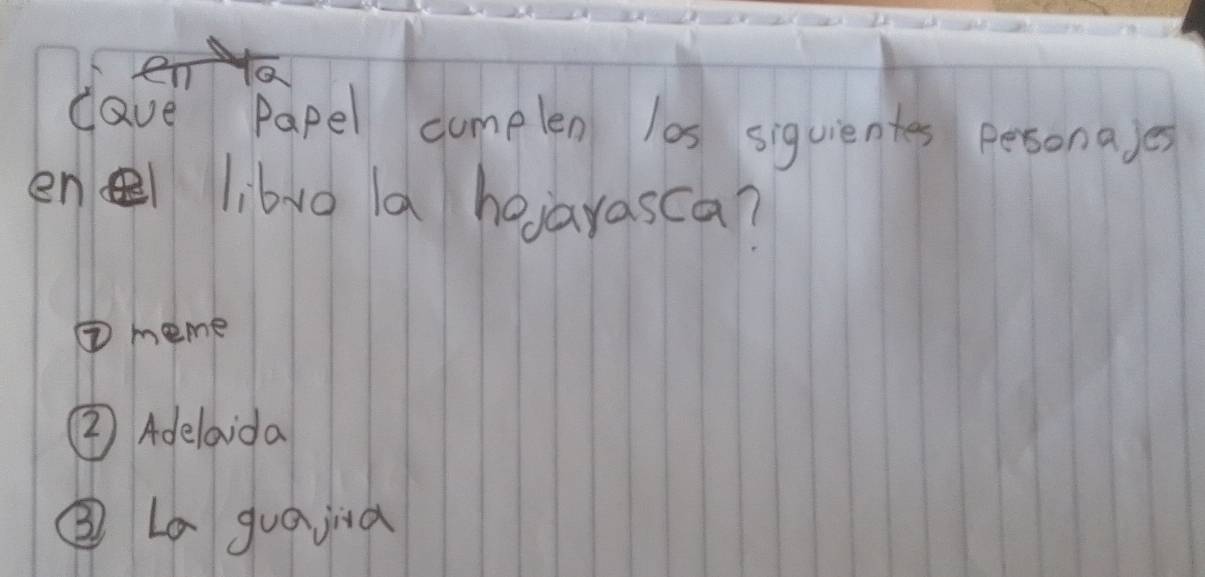 en la
¿Que Papel cumplen los siguientes personajes
en el libro la hojarasca?
① meme
② Adelaida
③ La guajira